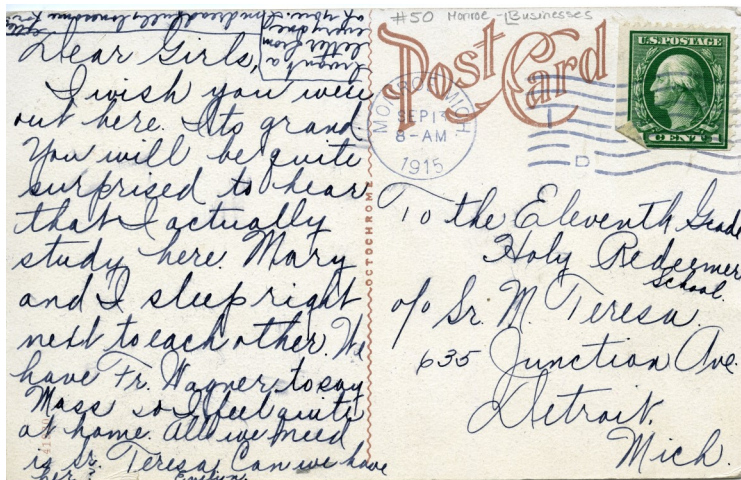 #50 Monroe - Businesses
Post Card
U.S. POSTAGE
1 CENT 1
MONROE MICH
SEP 1
8-AM
1915
D
OCTOCHROME
Dear Girls,
I wish you were
out here. Its grand.
You will be quite
surprised to hear
that I actually
study here. Mary
and I sleep right
next to each other. We
have Fr. Wagner to say
Mass so I feel quite
at home. All we need
is Sr. Teresa. Can we have
her?
Evelyn
I want a
letter from
everyone
of you. I'm dreadfully lonesome for
To the Eleventh Grade
Holy Redeemer
School.
c/o Sr. M. Teresa.
635 Junction Ave.
Detroit,
Mich.